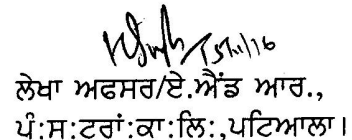 15/11/16
ਲੇਖਾ ਅਫਸਰ/ਏ.ਐਂਡ ਆਰ.,
ਪੰ:ਸ:ਟਰਾਂ:ਕਾ:ਲਿ:,ਪਟਿਆਲਾ।